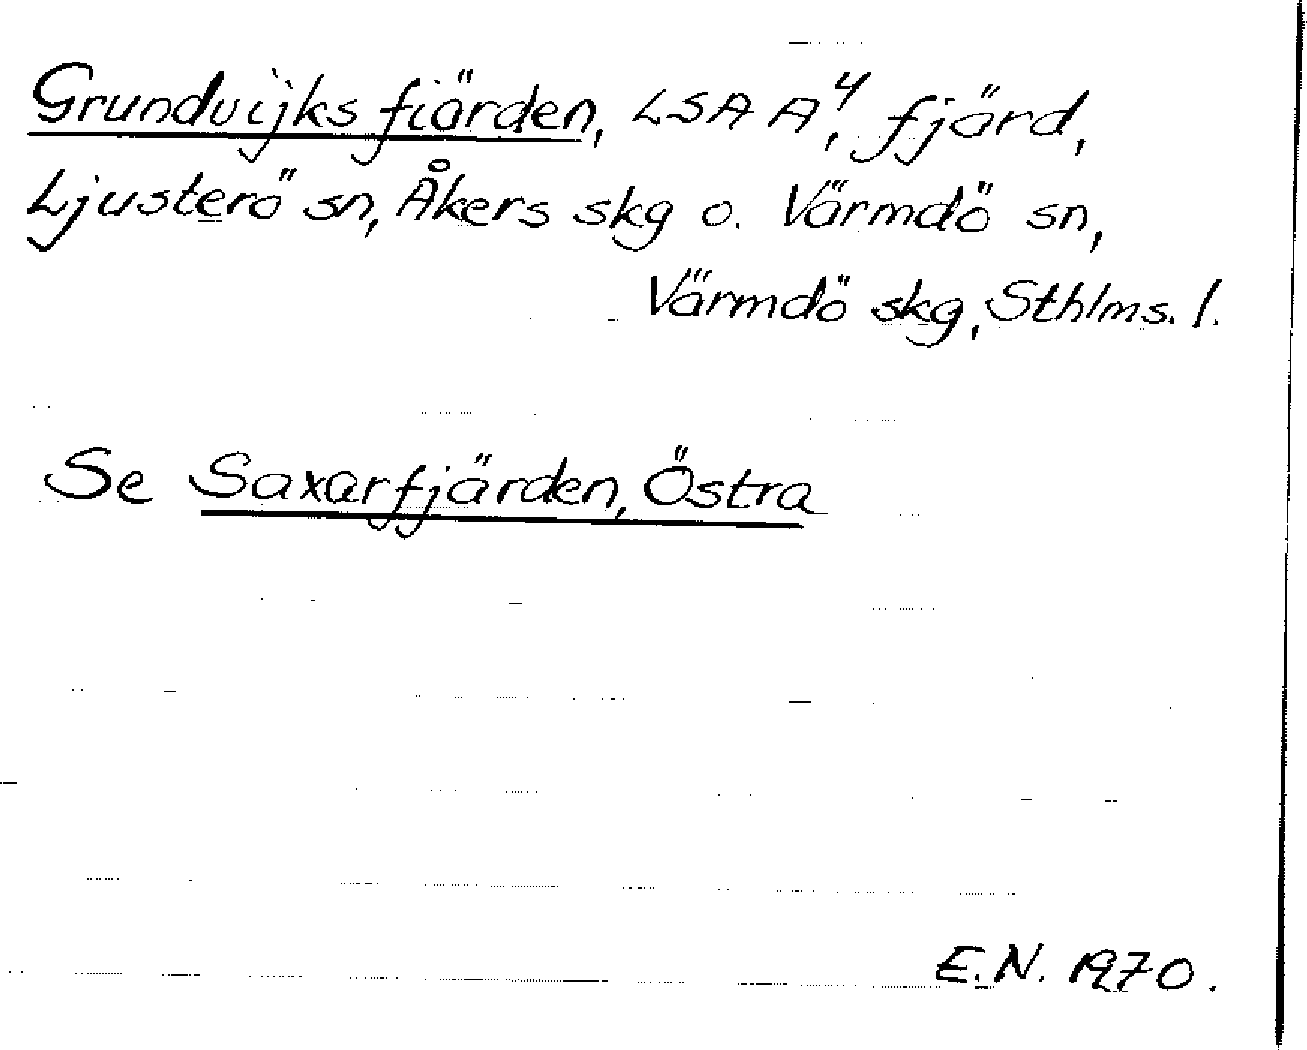 Grundvijks fiärden, LSA A⁴, fjärd,
Ljusterö sn, Åkers skg o. Värmdö sn,
Värmdö skg, Sthlms. l.
Se Saxarfjärden, Östra
E.N. 1970.